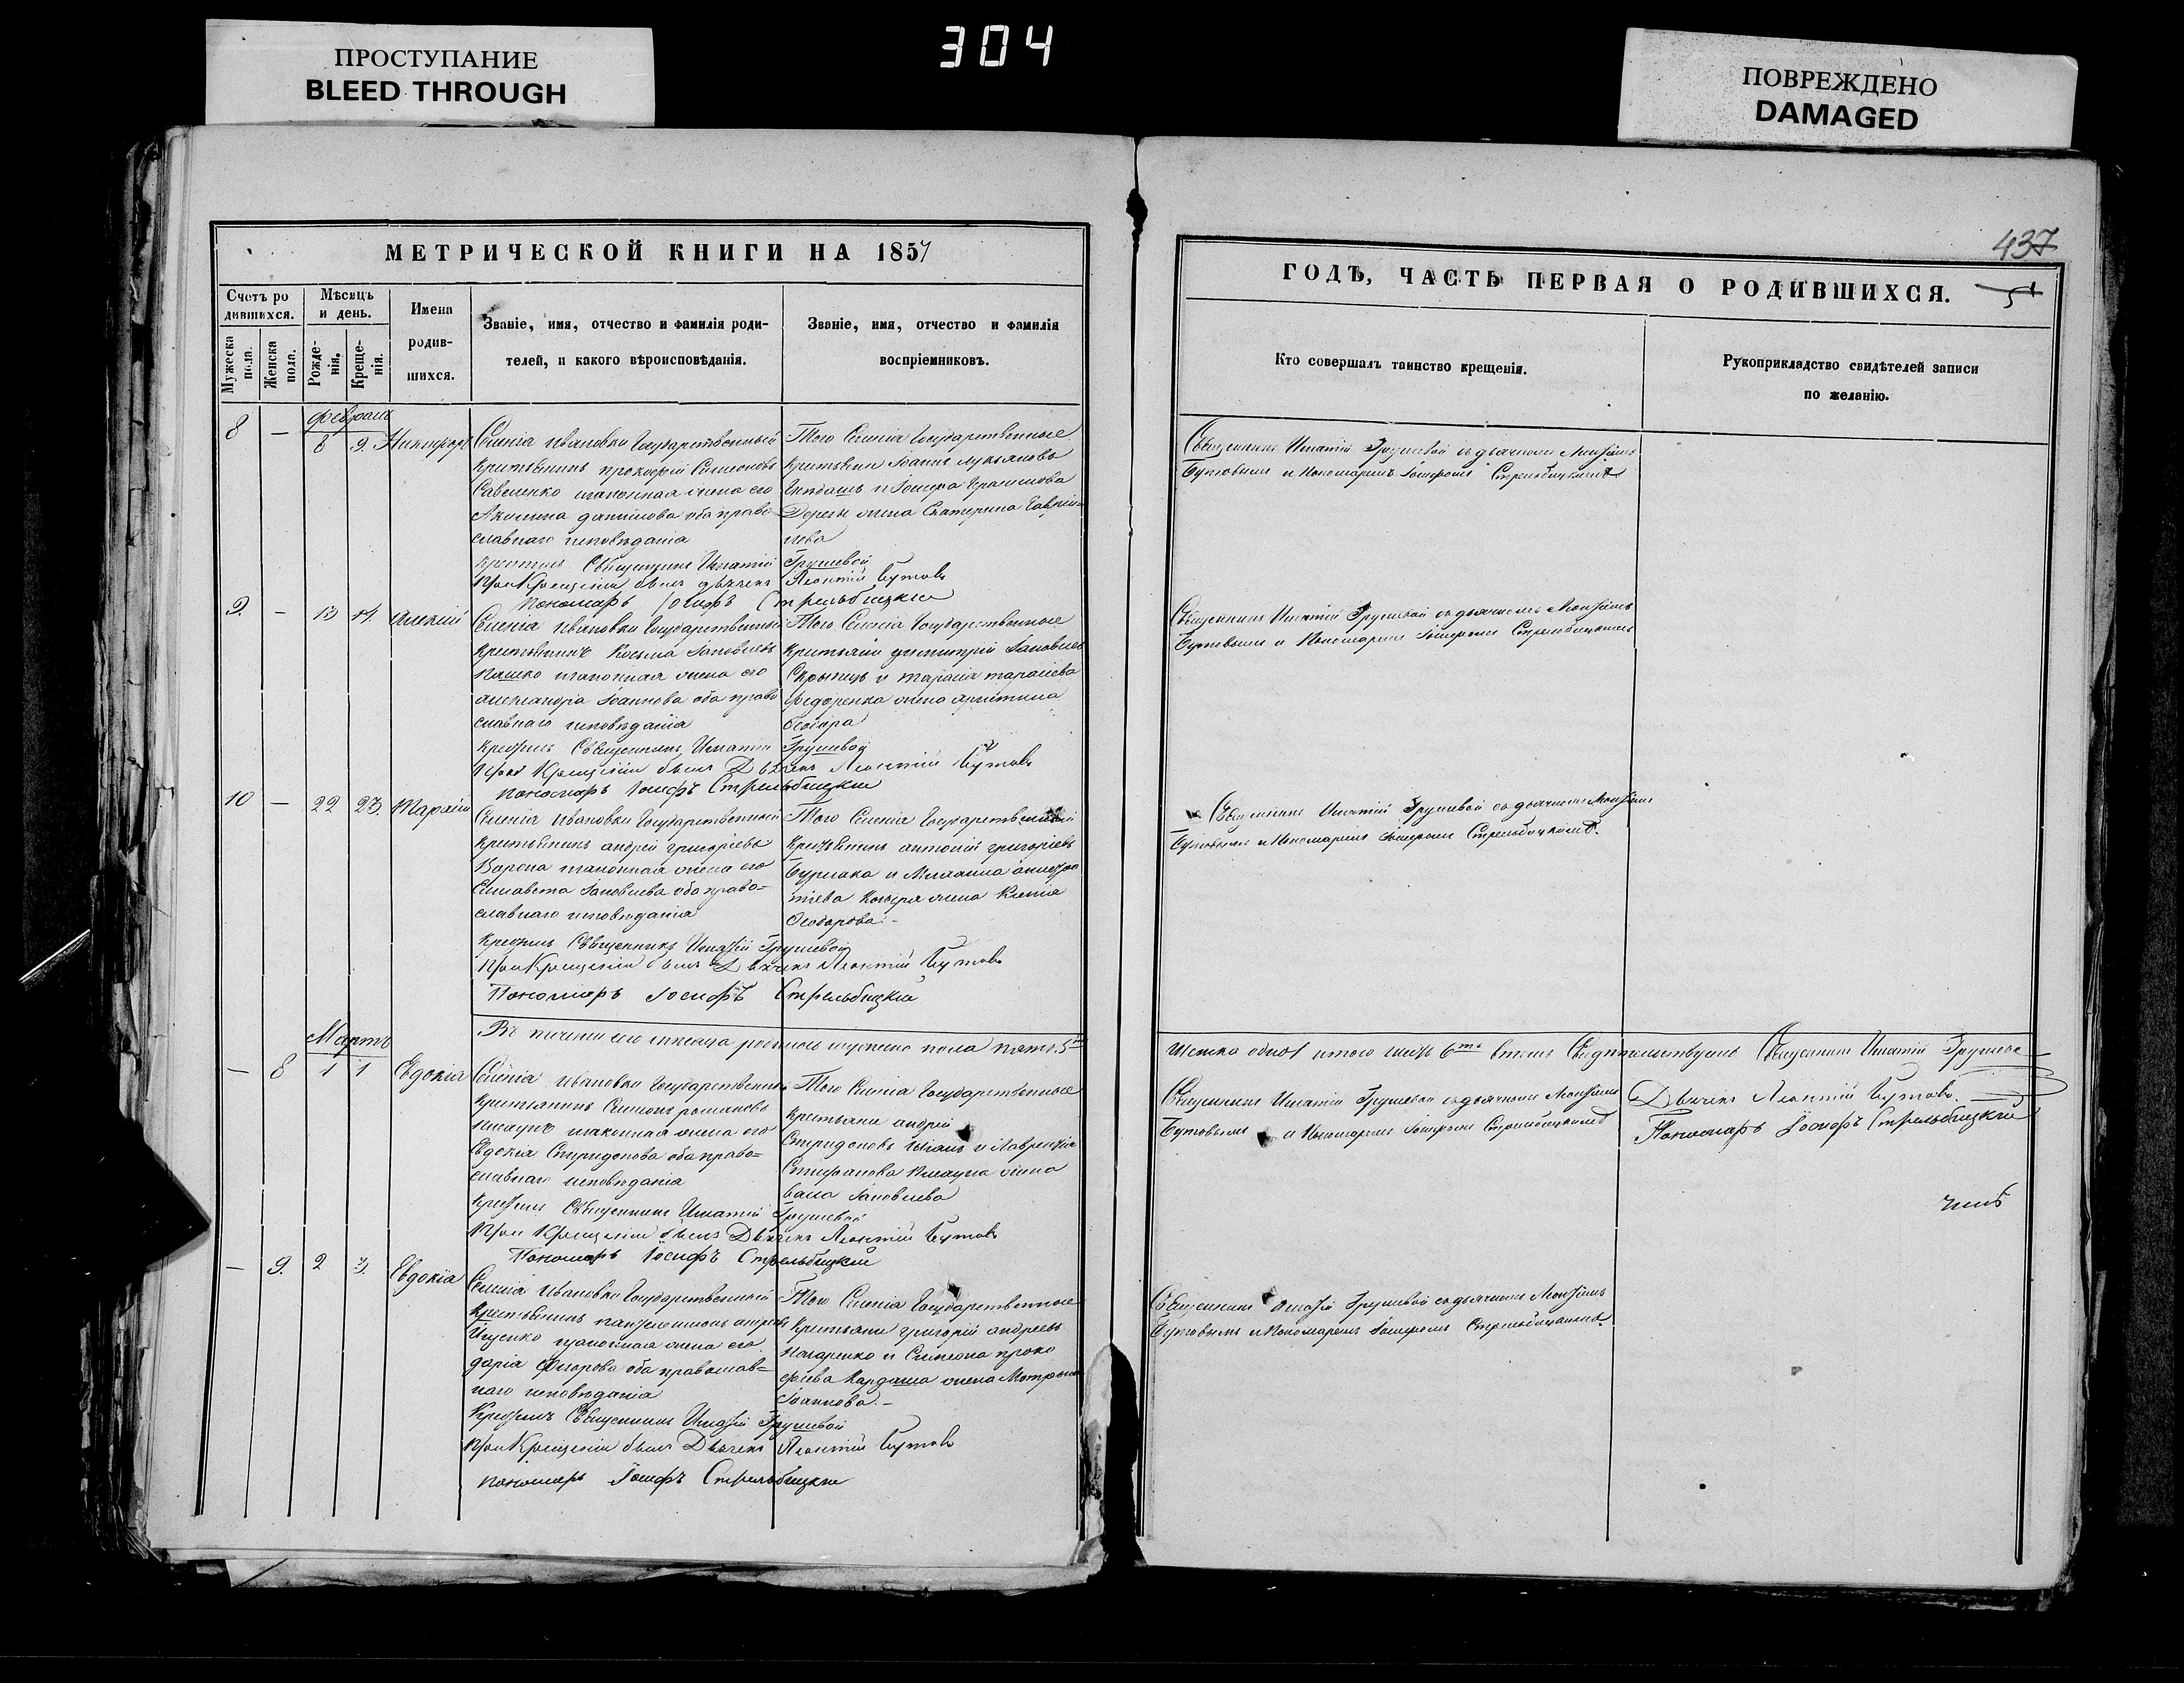 ПРОСТУПАНИЕ
BLEED THROUGH
304
ПОВРЕЖДЕНО
DAMAGED
МЕТРИЧЕСКОЙ КНИГИ НА 1857
Счетъ ро
дившихся.
Мужеска пола.
Женска пола.
Мѣсяцъ
и день.
Рожде-
нія.
Креще-
нія.
Имена
родив-
шихся.
Званіе, имя, отчество и фамилія роди-
телей, и какого вѣроисповѣданія.
Званіе, имя, отчество и фамилія
воспріемниковъ.
8 —
8 9. Никифоръ
Селенія Ивановки Государственный
крестьянинъ прокофій Симеоновъ
Савеленко законная жена его
Акилина даниилова оба право
славнаго исповѣданія
Того Селенія Государственные
Крестьяне Іоаннъ лукьяновъ
жена Екатерина Гавріи-
лова
Священникъ Игнатій Грушевой
При Крещеніи былъ дьячекъ Леонтій Бутовъ
Пономарь Іосифъ Стрельбицкій
9. — 13 14. Алексій
Селенія Ивановки Государственный
Крестьянинъ Косьма Іаковлевъ
Пашко законная жена его
александра Іоаннова оба право
славнаго исповѣданія
Того Селенія Государственные
Крестьяне димитрій Іаковлевъ
Скрыпць и тарасія тарасіева
федоренка жена христина
Крестилъ Священникъ Игнатій Грушевой
При Крещеніи былъ Дьячекъ Леонтій Бутовъ
пономарь Іосифъ Стрельбицкій
10 — 22 23. Тарасій
Селенія Ивановки Государственный
Крестьянинъ андрей григоріевъ
Ворона законная жена его
Елисавета Іаковлева оба право-
славнаго исповѣданія
Того Селенія Государственный
Крестьянинъ антоній григоріевъ
жена Ксенія
Ѳеодорова. –
Крестилъ Священникъ Игнатій Грушевой
При Крещеніи былъ Дьячекъ Леонтій Бутовъ
Пономарь Іосифъ Стрельбицкій
Въ теченіи сего мѣсяца родилось мужеска пола пять. 5ть
Мартъ
— 8 1 1 Евдокія
Селенія Ивановки Государственный
Крестьянинъ Симеонъ романовъ
законная жена его
Евдокія Спиридонова оба право-
славнаго исповѣданія
Того Селенія Государственные
Крестьяне андрей
Спиридоновъ и Лаврентія
Стефанова жена
Іаковлева
Крестилъ Священникъ Игнатій Грушевой
При Крещеніи былъ Дьячекъ Леонтій Бутовъ
Пономарь Іосифъ Стрельбицкій
— 9. 2 3. Евдокія
Селенія Ивановки Государственный
Крестьянинъ пантелеимонъ
Ищенко законная жена его
дарія оба православ-
наго исповѣданія
Того Селенія Государственные
Крестьяне григорій андреевъ
и Симеона проко
фіева Кардаша жена Матрона
Іоаннова. –
Крестилъ Священникъ Игнатій Грушевой
При Крещеніи былъ Дьячекъ Леонтій Бутовъ
пономарь Іосифъ Стрельбицкій
437
ГОДЪ, ЧАСТЬ ПЕРВАЯ О РОДИВШИХСЯ.
Кто совершалъ таинство крещенія.
Рукоприкладство свидѣтелей записи
по желанію.
Священникъ Игнатій Грушевой съ дьячкомъ Леонтіемъ
Бутовымъ и Пономаремъ Іосифомъ Стрельбицкимъ
Священникъ Игнатій Грушевой съ дьячкомъ Леонтіемъ
Бутовымъ и Пономаремъ Іосифомъ Стрельбицкимъ
Священникъ Игнатій Грушевой съ дьячкомъ Леонтіемъ
Бутовымъ и Пономаремъ Іосифомъ Стрельбицкимъ.
итого 6ть Свидѣтельствуемъ Священникъ Игнатій Грушевой
Священникъ Игнатій Грушевой съ дьячкомъ Леонтіемъ
Бутовымъ и Пономаремъ Іосифомъ Стрельбицкимъ
Дьячекъ Леонтій Бутовъ.
Пономарь Іосифъ Стрельбицкій
Священникъ Игнатій Грушевой съ дьячкомъ Леонтіемъ
Бутовымъ и Пономаремъ Іосифомъ Стрельбицкимъ.